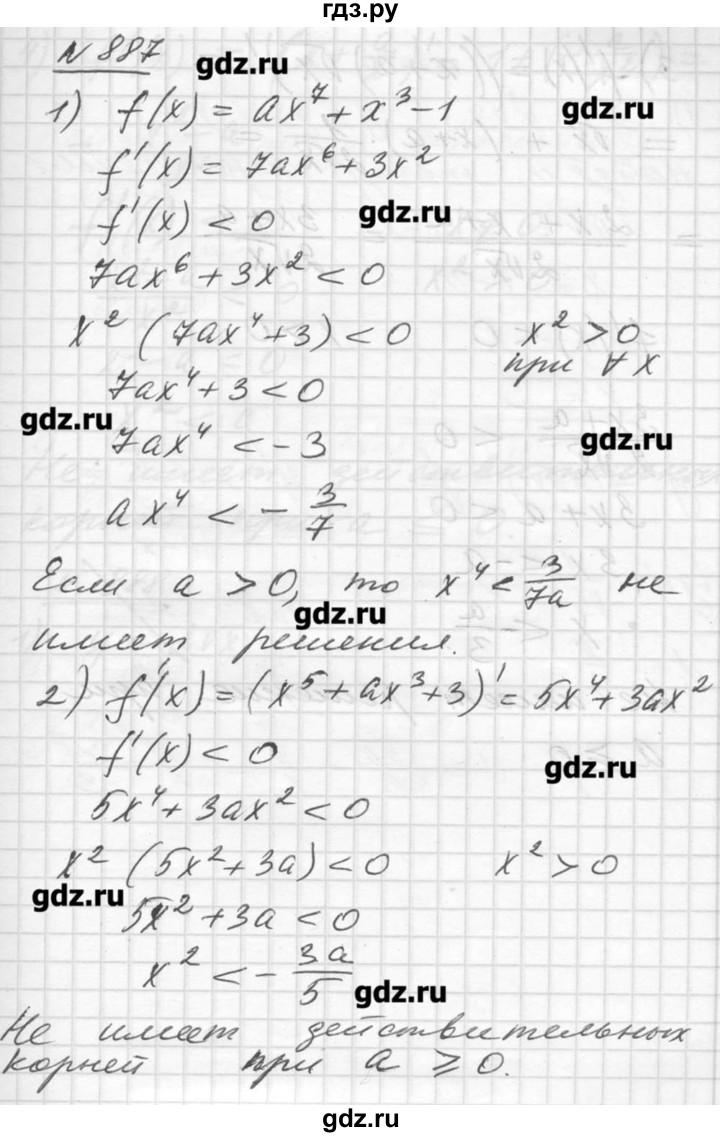 гдз.ру
№ 887
gdz.ru
1) f(x) = ax⁷ + x³ - 1
gdz.ru
f'(x) = 7ax⁶ + 3x²
f'(x) < 0
gdz.ru
7ax⁶ + 3x² < 0
x² (7ax⁴ + 3) < 0 x² > 0
при ∀ x
7ax⁴ + 3 < 0
gdz.ru
7ax⁴ < -3
gdz.ru
ax⁴ < - 3/7
Если a > 0, то x⁴ < 3/7a не
gdz.ru
имеет решения.
2) f'(x) = (x⁵ + ax³ + 3)' = 5x⁴ + 3ax²
f'(x) < 0
gdz.ru
5x⁴ + 3ax² < 0
x² (5x² + 3a) < 0 x² > 0
gdz.ru
5x² + 3a < 0
x² < - 3a/5
gdz.ru
Не имеет действительных
корней при a ⩾ 0.
gdz.ru